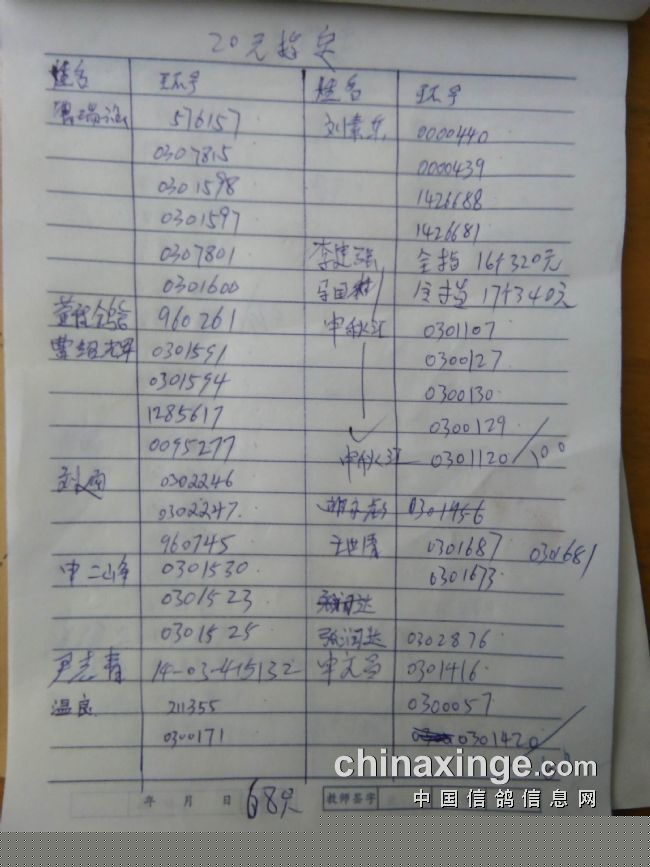 20元指定
姓名 环号 姓名 环号
576157 刘素东 0000440
0307815 0000439
0301598 1426688
0301597 1426681
0307801 李建强 全指 16只320元
0301600 全指 17只340元
960261 申秋江 0301107
0301591 0300127
0301594 0300130
1285617 0300129
0095277 申秋江 0301120 100
0302246
0302247 0301456
960745 王世清 0301687 0301681
申二峰 0301530 0301673
0301523
0301525 张润达 0302876
尹志青 14-03-415132 申文昌 0301416
温良 211355 0300057
0300171 0301420
年 月 日 68只 教师签字
chinaxinge.com
中国信鸽信息网